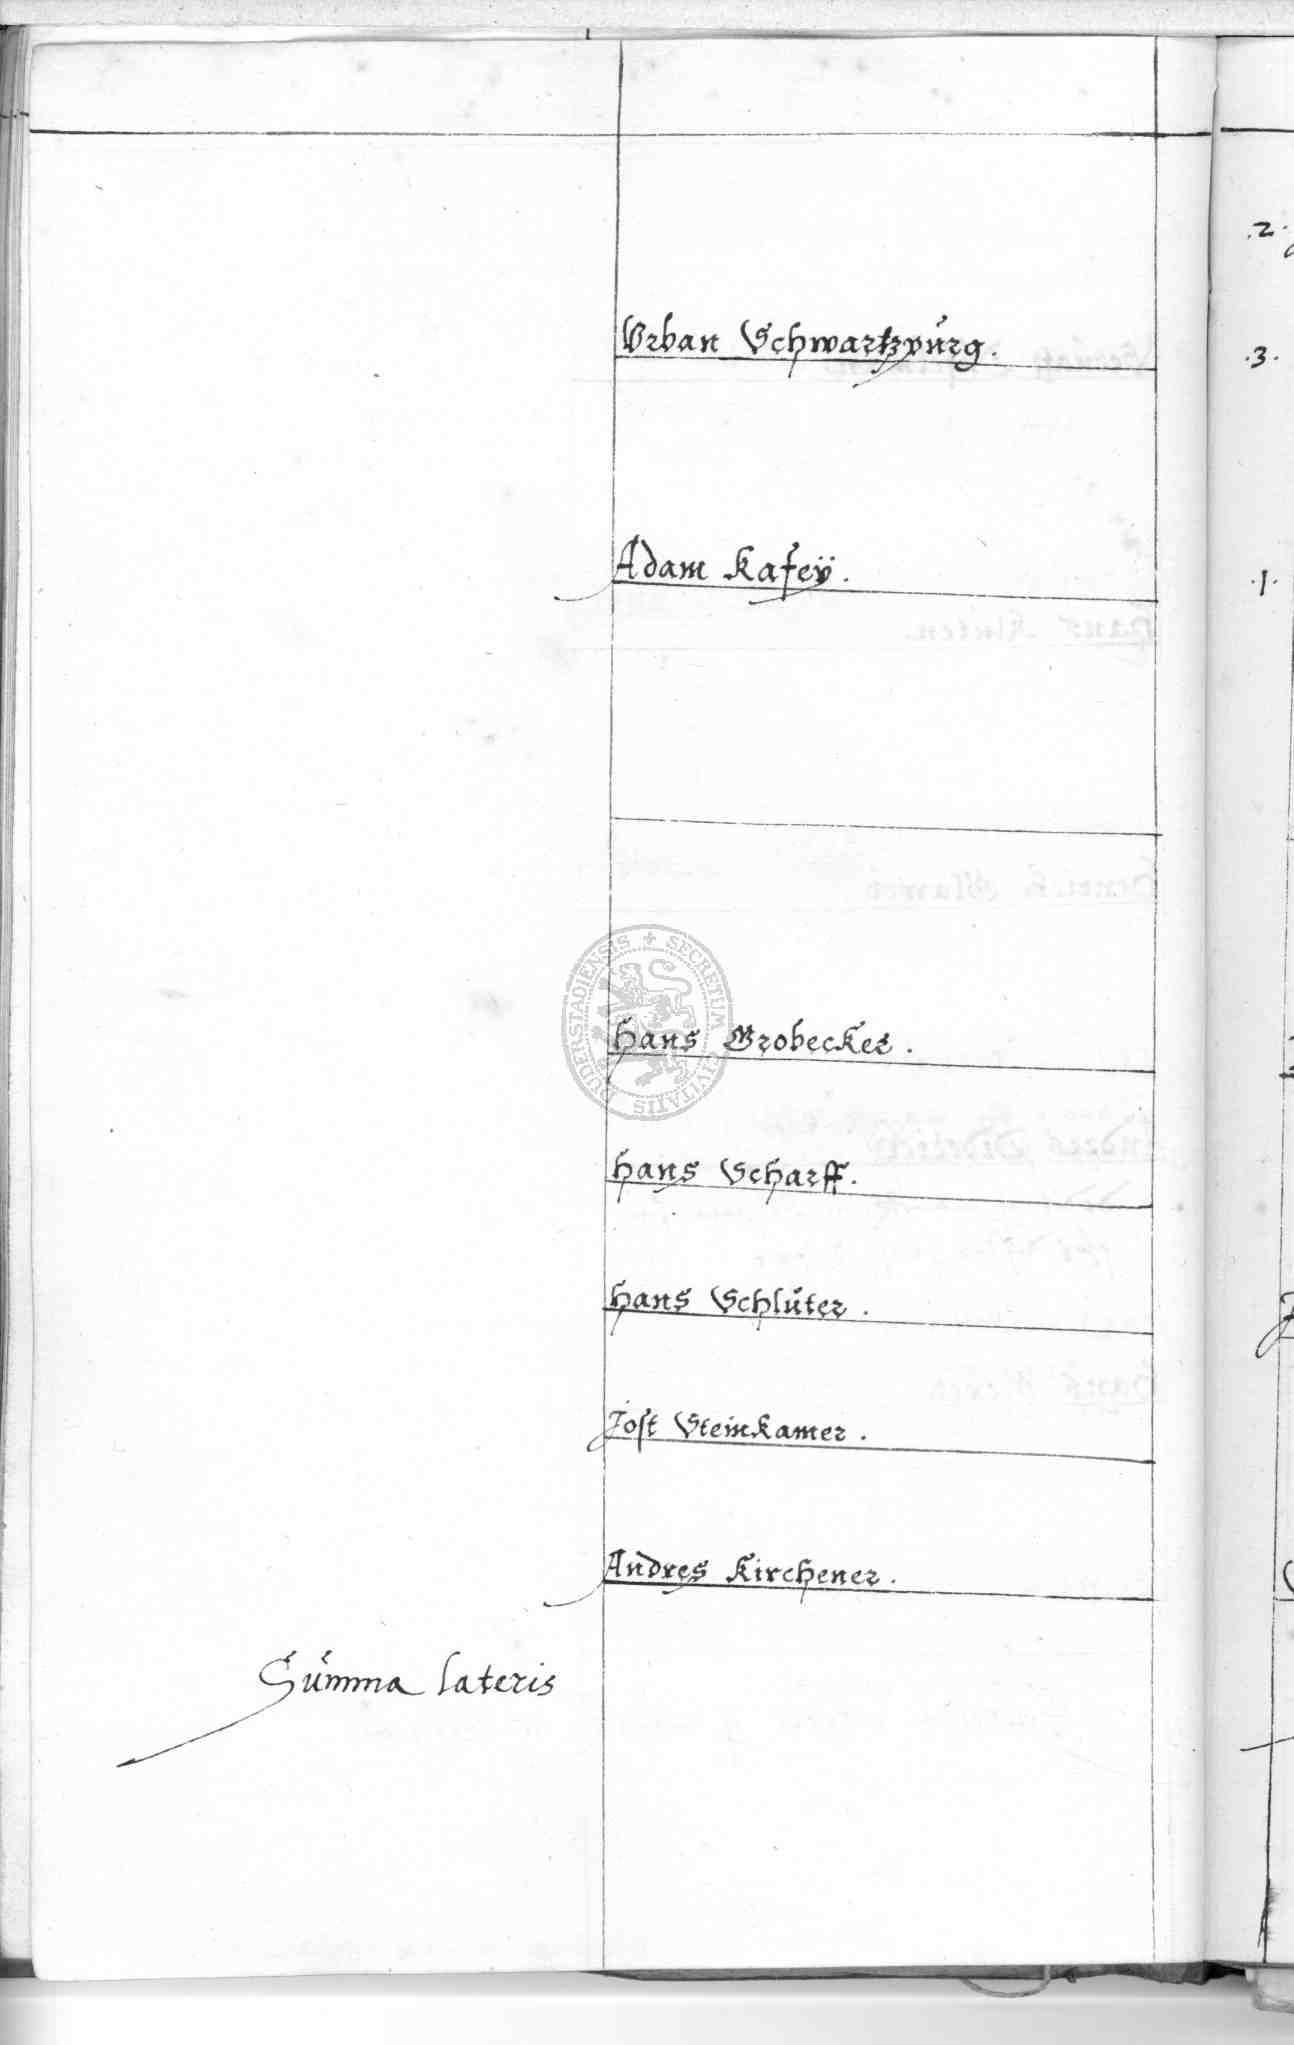 Vrban Schwartzpurg.
.2.
.3.
Adam Kafeÿ.
.1.
SECRETUM CIVITATIS DUDERSTADIENSIS
Hans Brobecker.
Hans Scharff.
Hans Schlüter.
Jost Steinkamer.
Andres Kirchener.
Summa lateris